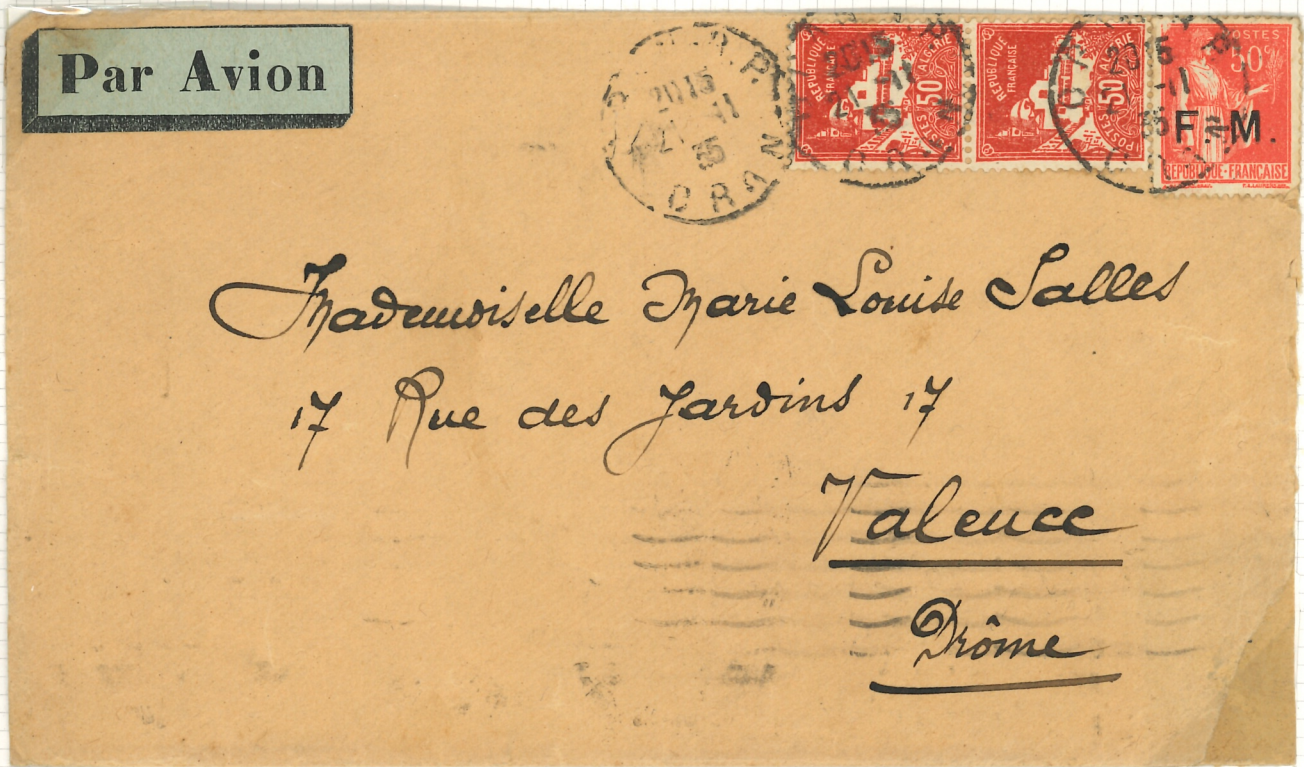 Par Avion
20 15
21 -11
35
ORAN
RÉPUBLIQUE
FRANÇAISE
POSTES 50c ALGÉRIE
RÉPUBLIQUE
FRANÇAISE
POSTES 50c ALGÉRIE
20 15
21 -11
35
ORAN
POSTES
50c
F. M.
REPUBLIQUE-FRANÇAISE
Mademoiselle Marie Louise Salles
17 Rue des Jardins 17
Valence
Drôme